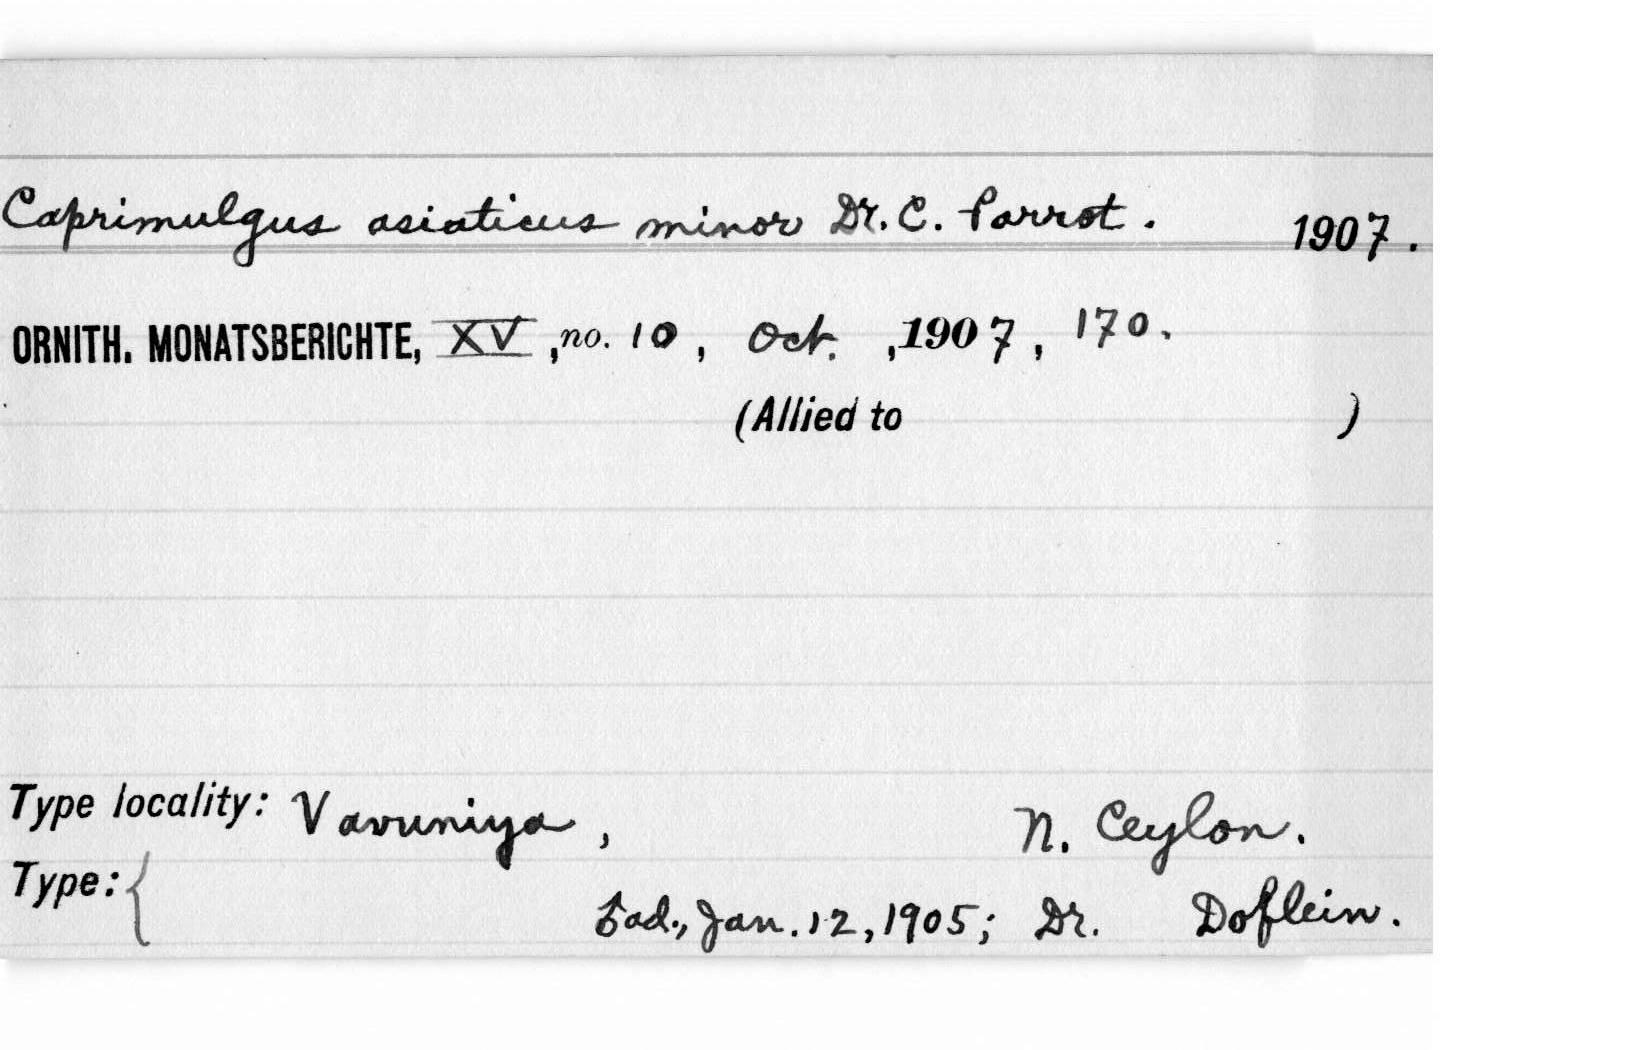 Caprimulgus asiaticus minor Dr. C. Parrot. 1907.
ORNITH. MONATSBERICHTE, XV, no. 10, Oct., 1907, 170.
(Allied to )
Type locality: Vavuniya, N. Ceylon.
Type: { ad., Jan. 12, 1905; Dr. Doflein.